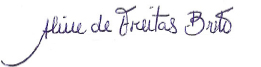 Aline de Freitas Brito